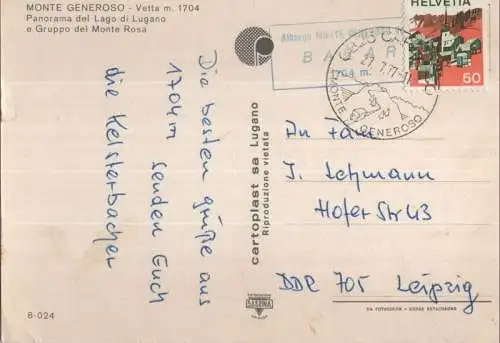 MONTE GENEROSO - Vetta m. 1704
Panorama del Lago di Lugano
e Gruppo del Monte Rosa
Die besten grüße aus
1704m
senden Euch
die Kelsterbacher
8-024
cartoplast sa Lugano
Riproduzione vietata
Albergo MONTE GENEROSO
1704 m.
MONTE GENEROSO
HELVETIA
50
An Fam
J. Lehmann
Hofer Str 43
DDR 705 Leipzig